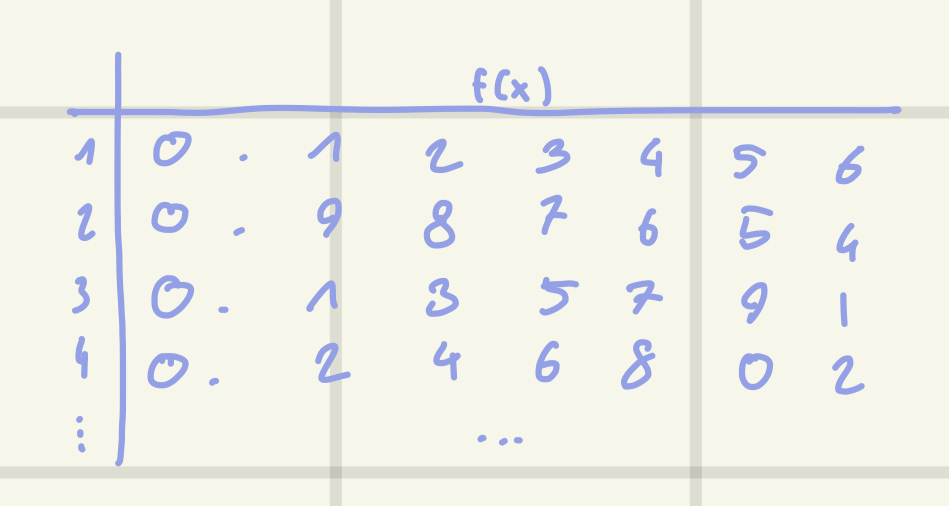 f(x)
1 0 . 1 2 3 4 5 6
2 0 . 9 8 7 6 5 4
3 0 . 1 3 5 7 9 1
4 0 . 2 4 6 8 0 2
⋮ ...